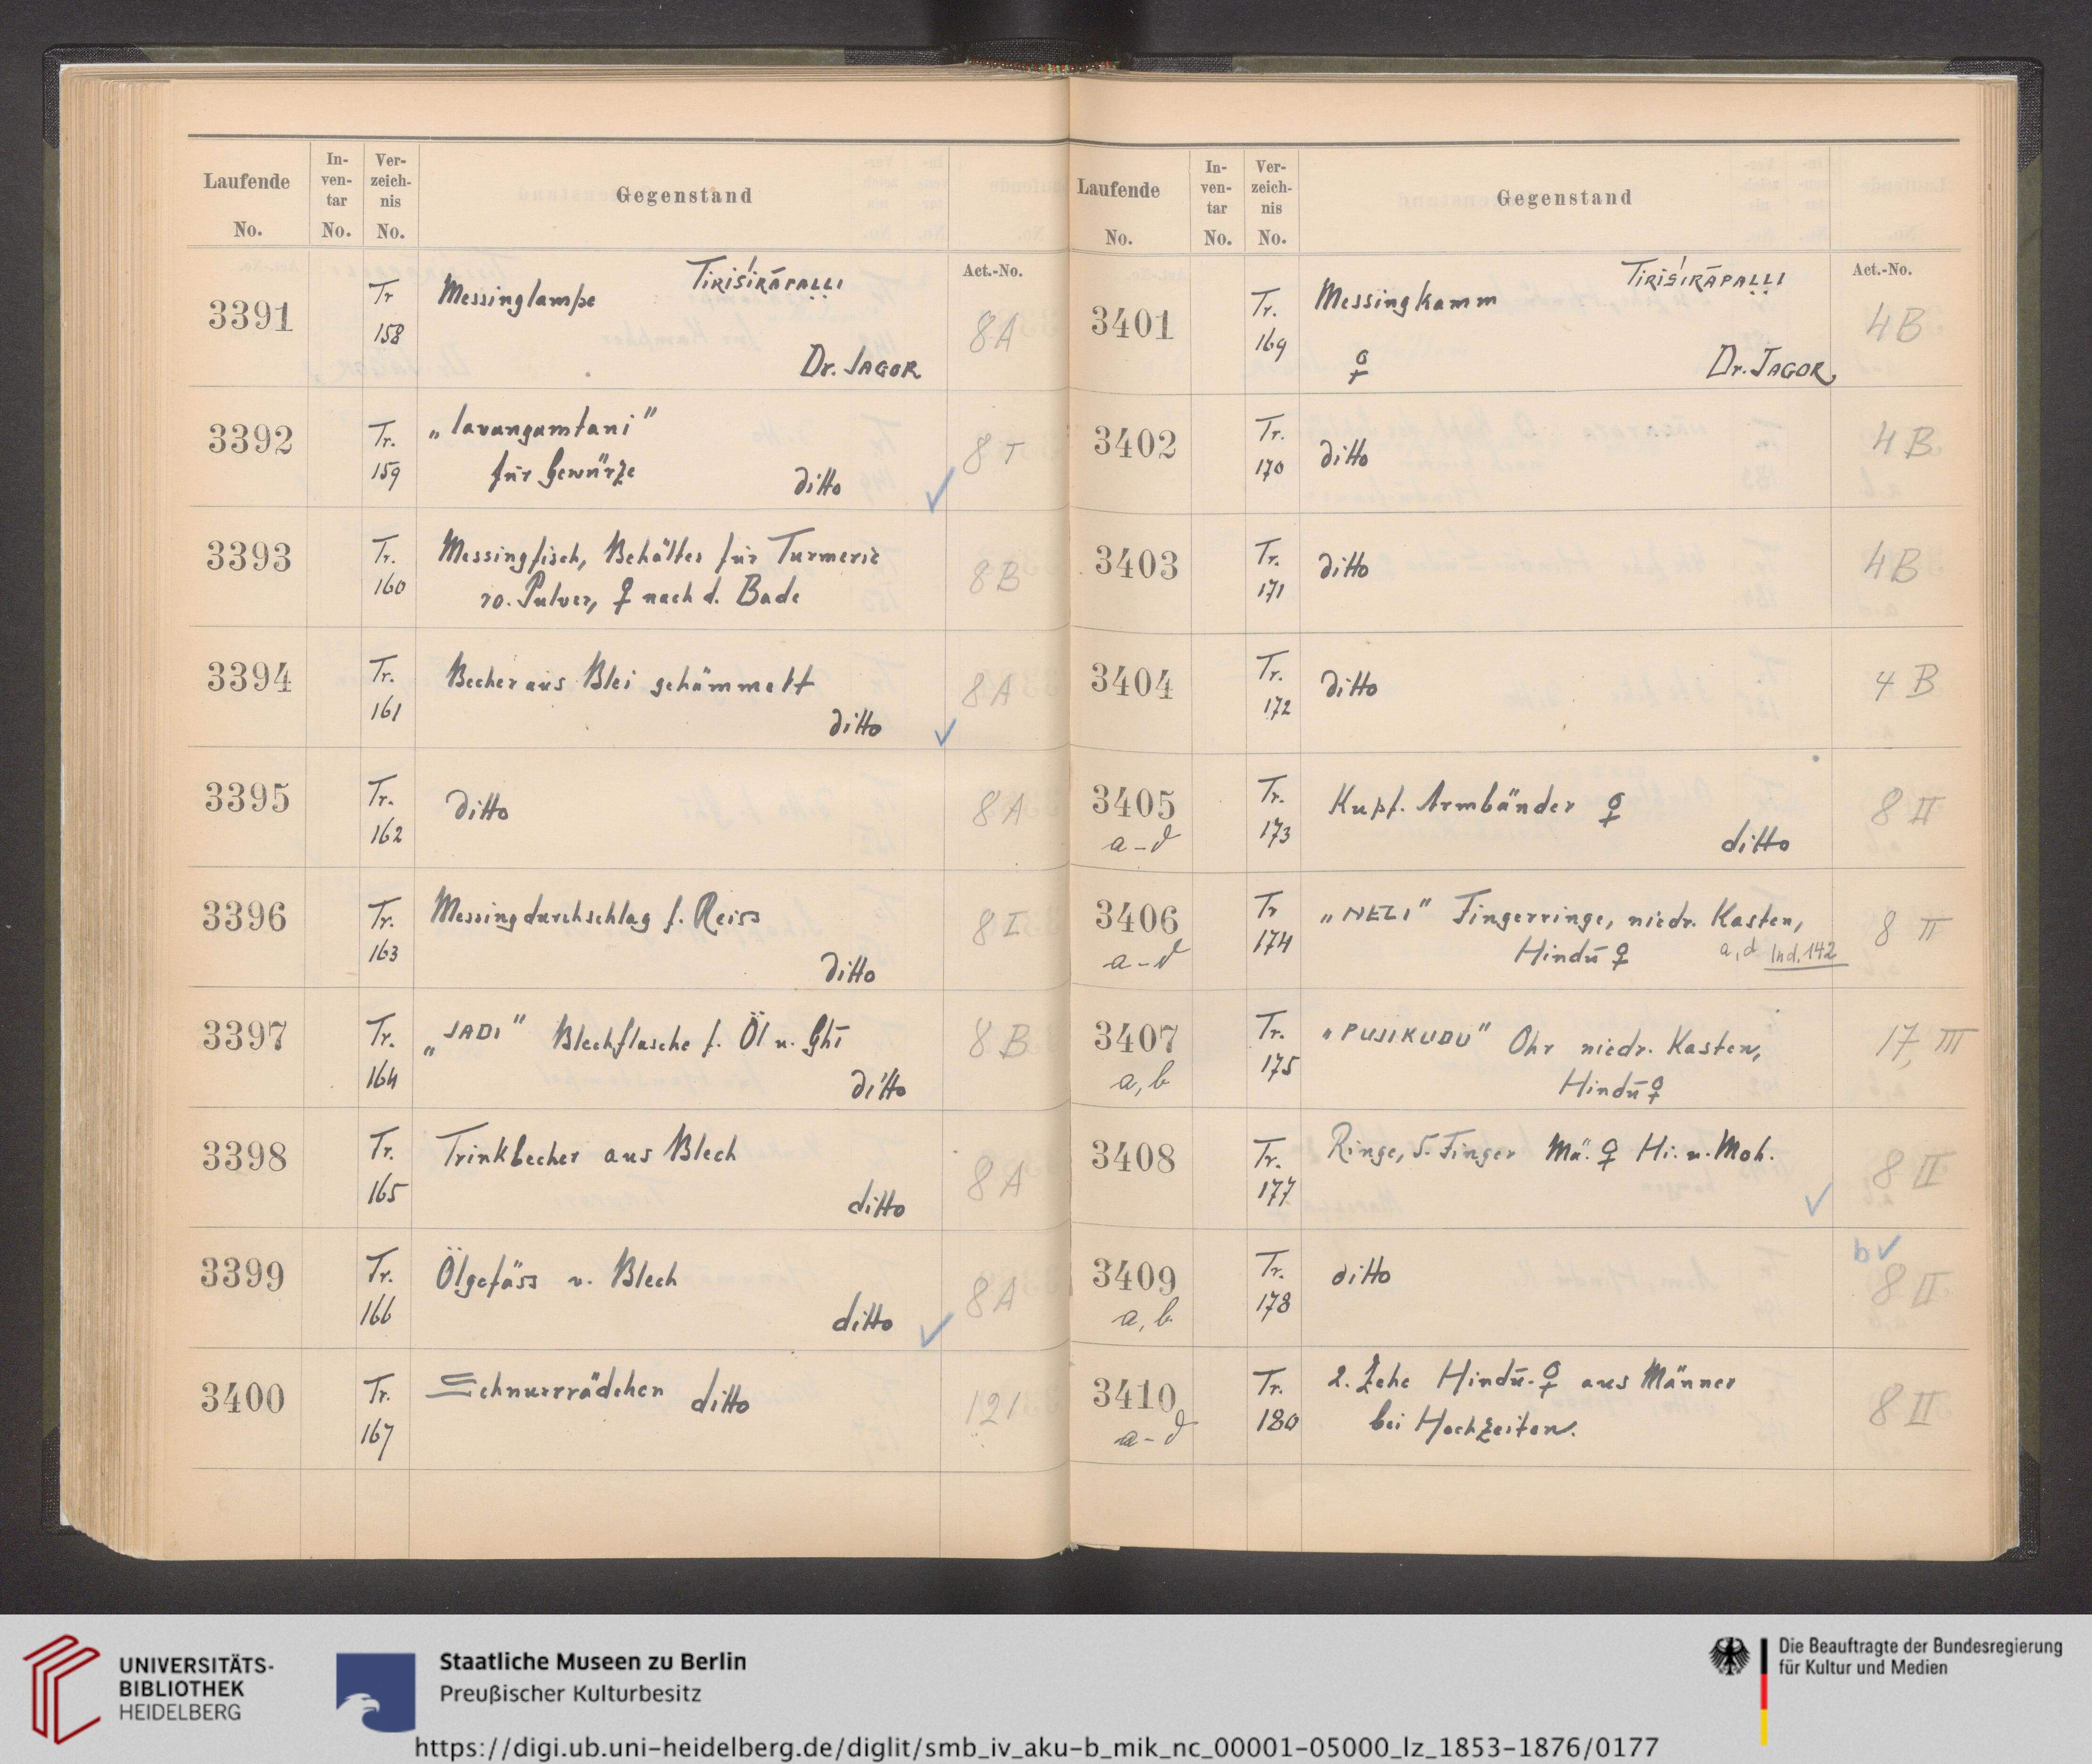 Laufende No. In-ven-tar No. Ver-zeich-nis No. Gegenstand
Act.-No.
3391 Tr 158 Messinglampe TIRIŚIRĀPAḶḶI
Dr. JAGOR 8A
3392 Tr. 159 „lavangamtani"
für Gewürze ditto 8
3393 Tr. 160 Messingfisch, Behälter für Turmeric
ro. Pulver, ♀ nach d. Bade 8B
3394 Tr. 161 Becher aus Blei gehämmelt
ditto 8A
3395 Tr. 162 ditto 8A
3396 Tr. 163 Messingdurchschlag f. Reiss
ditto 8I
3397 Tr. 164 „JADI" Blechflasche f. Öl u. Ghī
ditto 8B
3398 Tr. 165 Trinkbecher aus Blech
ditto 8A
3399 Tr. 166 Ölgefäss v. Blech
ditto 8A
3400 Tr. 167 Schnurrrädchen ditto 121
Laufende No. In-ven-tar No. Ver-zeich-nis No. Gegenstand
Act.-No.
3401 Tr. 169 Messingkamm TIRIŚIRĀPAḶḶI
♀ Dr. JAGOR 4B
3402 Tr. 170 ditto 4B
3403 Tr. 171 ditto 4B
3404 Tr. 172 ditto 4B
3405 a-d Tr. 173 Kupf. Armbänder ♀
ditto 8 II
3406 a-d Tr 174 „NEZI" Fingerringe, niedr. Kasten,
Hindū ♀ a,d Ind. 142 8 II
3407 a,b Tr. 175 „PUJIKUDU" Ohr niedr. Kasten,
Hindū ♀ 17, III
3408 Tr. 177 Ringe, 5. Finger Mä. ♀ Hi. u. Moh. 8 II
3409 a,b Tr. 178 ditto b✓ 8 II
3410 a-d Tr. 180 2. Zehe Hindū-♀ aus Männer
bei Hochzeiten. 8 II
UNIVERSITÄTS-
BIBLIOTHEK
HEIDELBERG
Staatliche Museen zu Berlin
Preußischer Kulturbesitz
Die Beauftragte der Bundesregierung
für Kultur und Medien
https://digi.ub.uni-heidelberg.de/diglit/smb_iv_aku-b_mik_nc_00001-05000_lz_1853-1876/0177